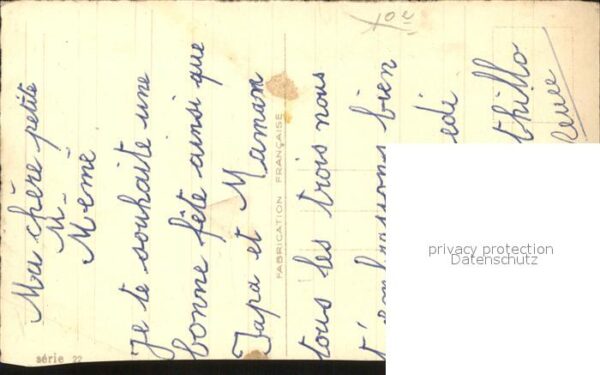 Ma chère petite
M. Mémé
je te souhaite une
bonne fête ainsi que
Papa et Maman
tous les trois nous
t'embrassons bien
FABRICATION FRANÇAISE
série 22
privacy protection
Datenschutz